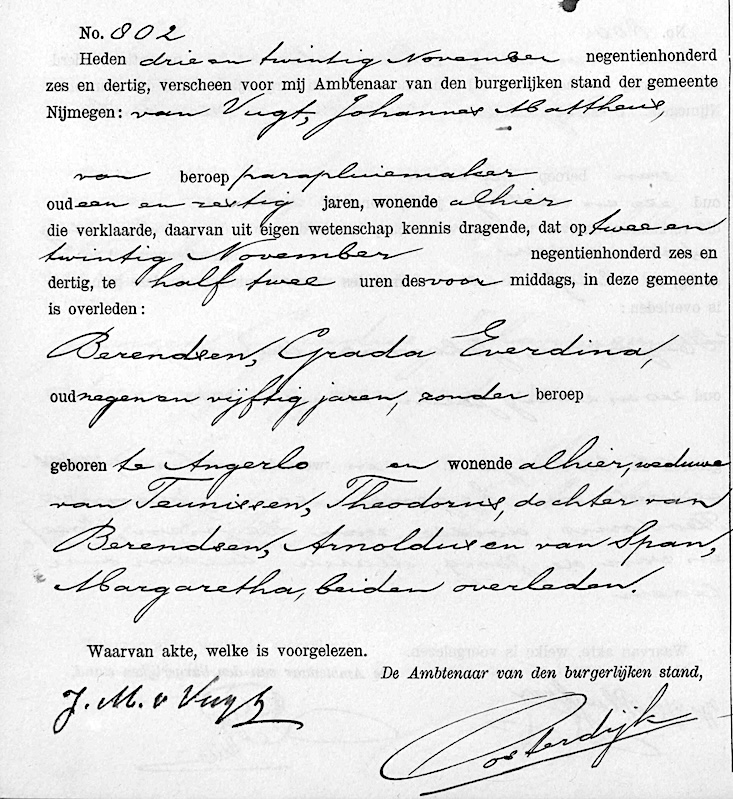 No. 802
Heden drie en twintig November negentienhonderd
zes en dertig, verscheen voor mij Ambtenaar van den burgerlijken stand der gemeente
Nijmegen: van Vugt, Johannes Mattheus,
van beroep parapluiemaker
oud een en zestig jaren, wonende alhier
die verklaarde, daarvan uit eigen wetenschap kennis dragende, dat op twee en
twintig November negentienhonderd zes en
dertig, te half twee uren des voor middags, in deze gemeente
is overleden:
Berendsen, Grada Everdina,
oud negen en vijftig jaren, zonder beroep
geboren te Angerlo en wonende alhier, weduwe
van Teunissen, Theodorus, dochter van
Berendsen, Arnoldus en van Span,
Margaretha, beiden overleden.
Waarvan akte, welke is voorgelezen.
De Ambtenaar van den burgerlijken stand,
J. M. v Vugt
Oosterdijk